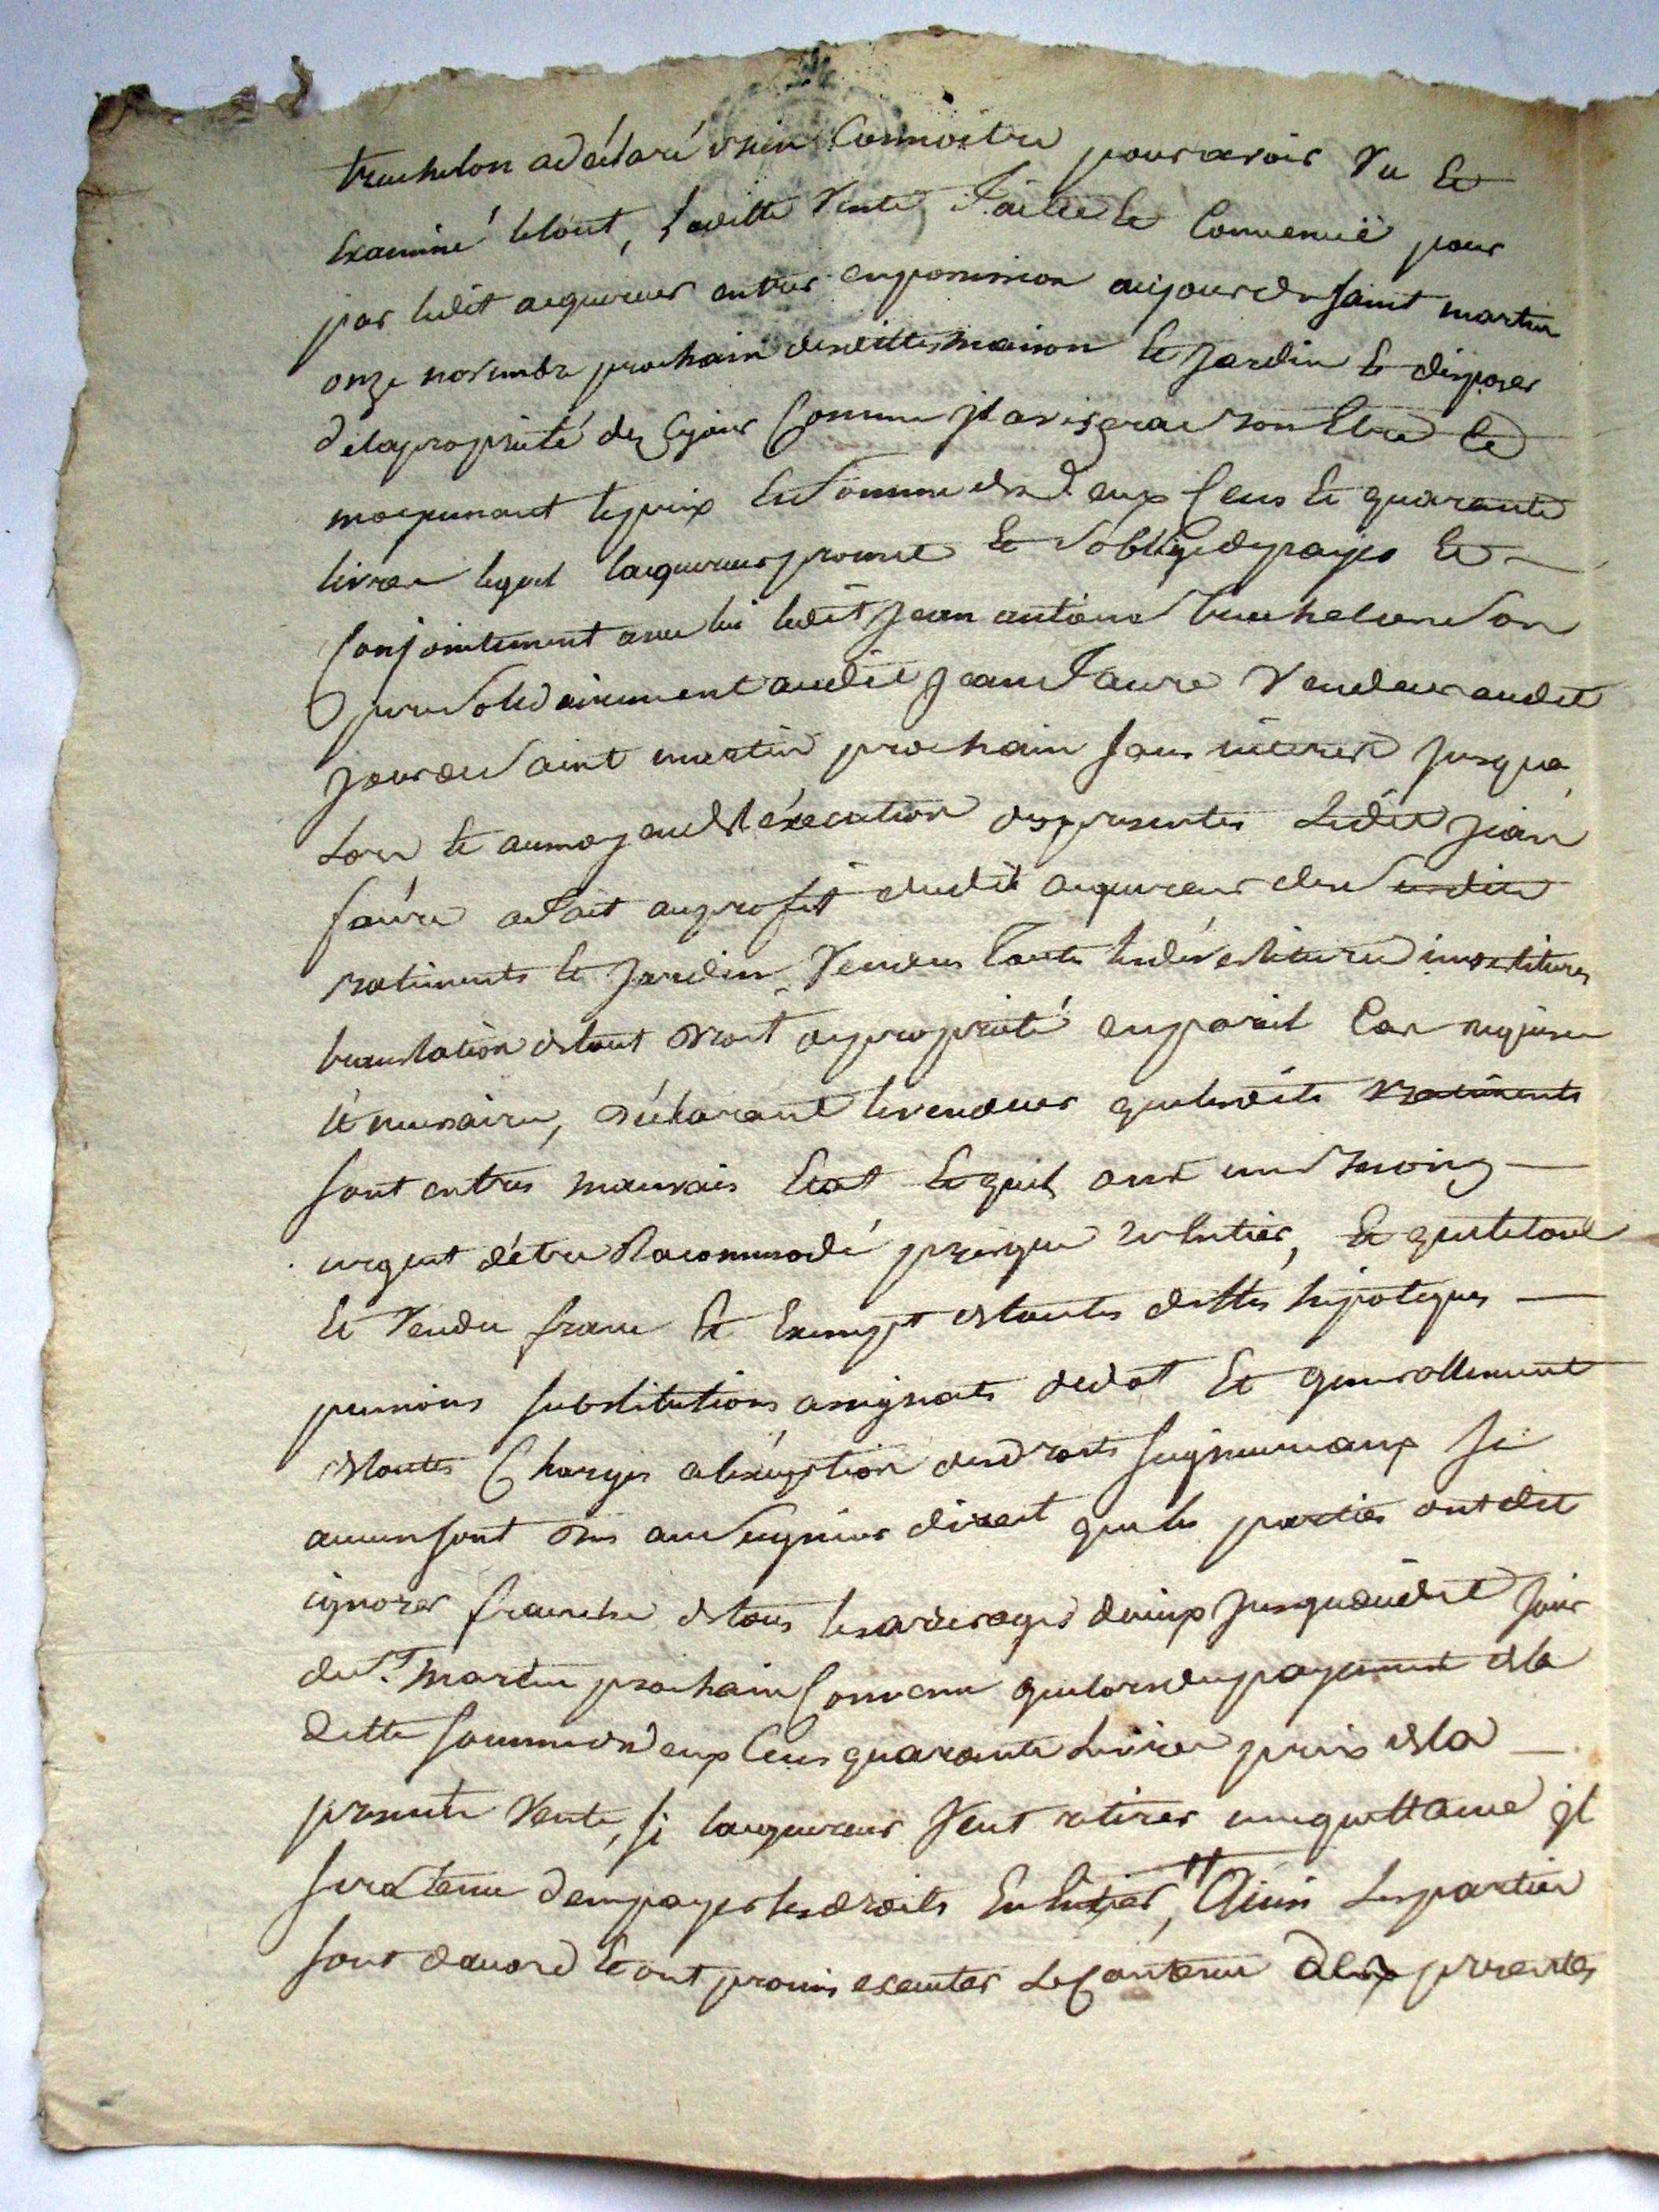 truchelon a déclaré bien Connoitre pour avoir Vu et
Examiné letout, Laditte Vente faitte et Convenuë pour
par ledit acquereur entrer enpossession aujour de saint martin
onze novembre prochain desdittes maison et Jardin et disposer
delapropriété dez cejour Comme jl avisera bon Etre et
moyennant leprix et somme de deux Cens et quarante
livres lequel lacquereur promet et soblige de payer et
Conjointement avec lui ledit Jean antoine truchelon son
pere solidairement audit Jean faure Vendeur audit
Jour de saint martin prochain sans interest jusqua
Lors et aumoyen de lexécution des presentes Ledit jean
faure afait auprofit dudit acquereur des susdits
batiments et Jardin Vendus toutte lesdévestiture investiture
translation de tout droit depropriété enpareil Cas requise
et necessaire, déclarant levendeur que lesdits batiments
sont entres mauvais Etat et quil ont un besoing
urgent dêtre Racommodé presque en Entier, et que le tout
Et Vendu franc et Exempt de toutes dettes hipoteques
pensions substitutions, assignats dedot et generallement
de toutes Charges alexception des droits seigneuriaux si
aucun sont dus au seignieur direct que les parties ont dit
ignorer franche de tous les arrerages diceux jusquaudit jour
de St. martin prochain Convenu que lors du payement de la
ditte somme de deux Cens quarante Livres prix de la
presente Vente, si lacquereur veut retirer une quittance jl
sera tenu den payer les droits En Entier, Ainsi Les parties
sont dacord et ont promis executer Le Contenu des presentes